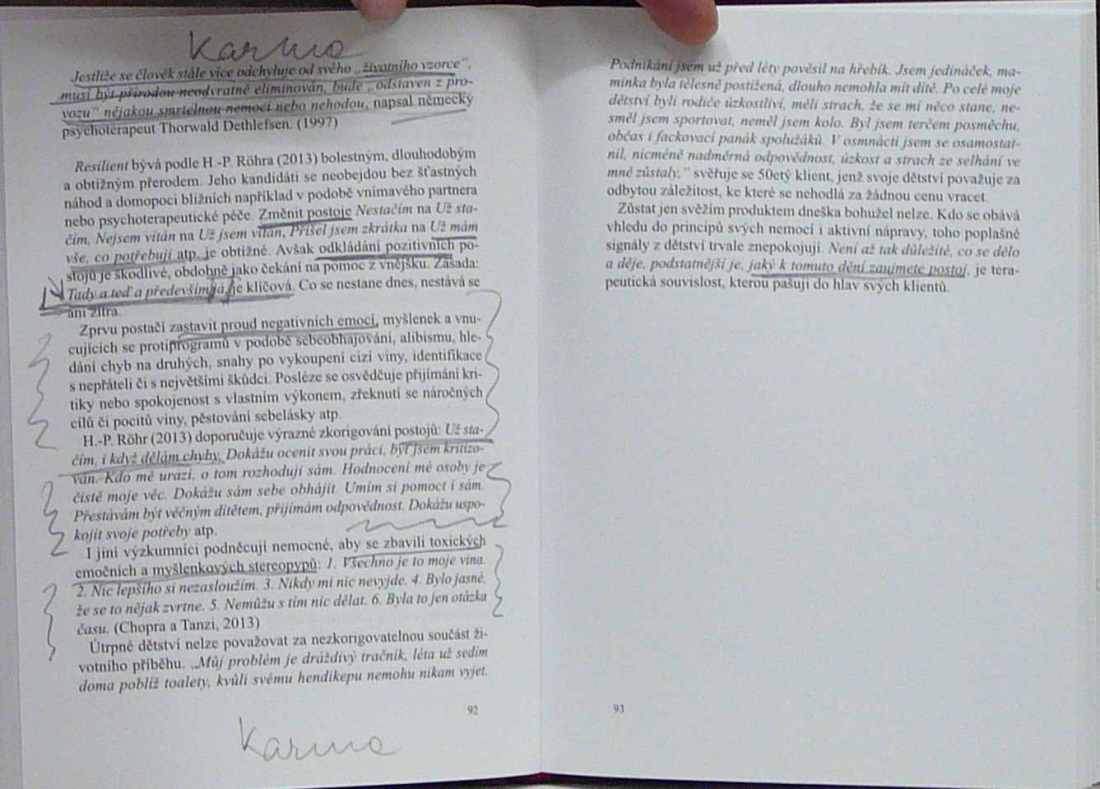 Karma
Jestliže se člověk stále více odchyluje od svého „životního vzorce“,
musí být přírodou neodvratně eliminován, bude „odstaven z pro-
vozu“ nějakou smrtelnou nemocí nebo nehodou, napsal německý
psychoterapeut Thorwald Dethlefsen. (1997)
Resilient bývá podle H.-P. Röhra (2013) bolestným, dlouhodobým
a obtížným přerodem. Jeho kandidáti se neobejdou bez šťastných
náhod a domopoci bližních například v podobě vnímavého partnera
nebo psychoterapeutické péče. Změnit postoje Nestačím na Už sta-
čím, Nejsem vítán na Už jsem vítán, Přišel jsem zkrátka na Už mám
vše, co potřebuji atp. je obtížné. Avšak odkládání pozitivních po-
stojů je škodlivé, obdobně jako čekání na pomoc z vnějšku. Zásada:
Tady a teď a především já je klíčová. Co se nestane dnes, nestává se
ani zítra.
Zprvu postačí zastavit proud negativních emocí, myšlenek a vnu-
cujících se protiprogramů v podobě sebeobhajování, alibismu, hle-
dání chyb na druhých, snahy po vykoupení cizí viny, identifikace
s nepřáteli či s největšími škůdci. Posléze se osvědčuje přijímání kri-
tiky nebo spokojenost s vlastním výkonem, zřeknutí se náročných
cílů či pocitů viny, pěstování sebelásky atp.
H.-P. Röhr (2013) doporučuje výrazné zkorigování postojů: Už sta-
čím, i když dělám chyby. Dokážu ocenit svou práci, byl jsem kritizo-
ván. Kdo mě urazí, o tom rozhoduji sám. Hodnocení mé osoby je
čistě moje věc. Dokážu sám sebe obhájit. Umím si pomoct i sám.
Přestávám být věčným dítětem, přijímám odpovědnost. Dokážu uspo-
kojit svoje potřeby atp.
I jiní výzkumníci podněcují nemocné, aby se zbavili toxických
emočních a myšlenkových stereotypů: 1. Všechno je to moje vina.
2. Nic lepšího si nezasloužím. 3. Nikdy mi nic nevyjde. 4. Bylo jasné,
že se to nějak zvrtne. 5. Nemůžu s tím nic dělat. 6. Byla to jen otázka
času. (Chopra a Tanzi, 2013)
Útrpné dětství nelze považovat za nezkorigovatelnou součást ži-
votního příběhu. „Můj problém je dráždivý tračník, léta už sedím
doma poblíž toalety, kvůli svému hendikepu nemohu nikam vyjet.
92
Karma
Podnikání jsem už před léty pověsil na hřebík. Jsem jedináček, ma-
minka byla tělesně postižená, dlouho nemohla mít dítě. Po celé moje
dětství byli rodiče úzkostliví, měli strach, že se mi něco stane, ne-
směl jsem sportovat, neměl jsem kolo. Byl jsem terčem posměchu,
občas i fackovací panák spolužáků. V osmnácti jsem se osamostat-
nil, nicméně nadměrná odpovědnost, úzkost a strach ze selhání ve
mně zůstaly,“ svěřuje se 50etý klient, jenž svoje dětství považuje za
odbytou záležitost, ke které se nehodlá za žádnou cenu vracet.
Zůstat jen svěžím produktem dneška bohužel nelze. Kdo se obává
vhledu do principů svých nemocí i aktivní nápravy, toho poplašné
signály z dětství trvale znepokojují. Není až tak důležité, co se dělo
a děje, podstatnější je, jaký k tomuto dění zaujmete postoj, je tera-
peutická souvislost, kterou pašuji do hlav svých klientů.
93